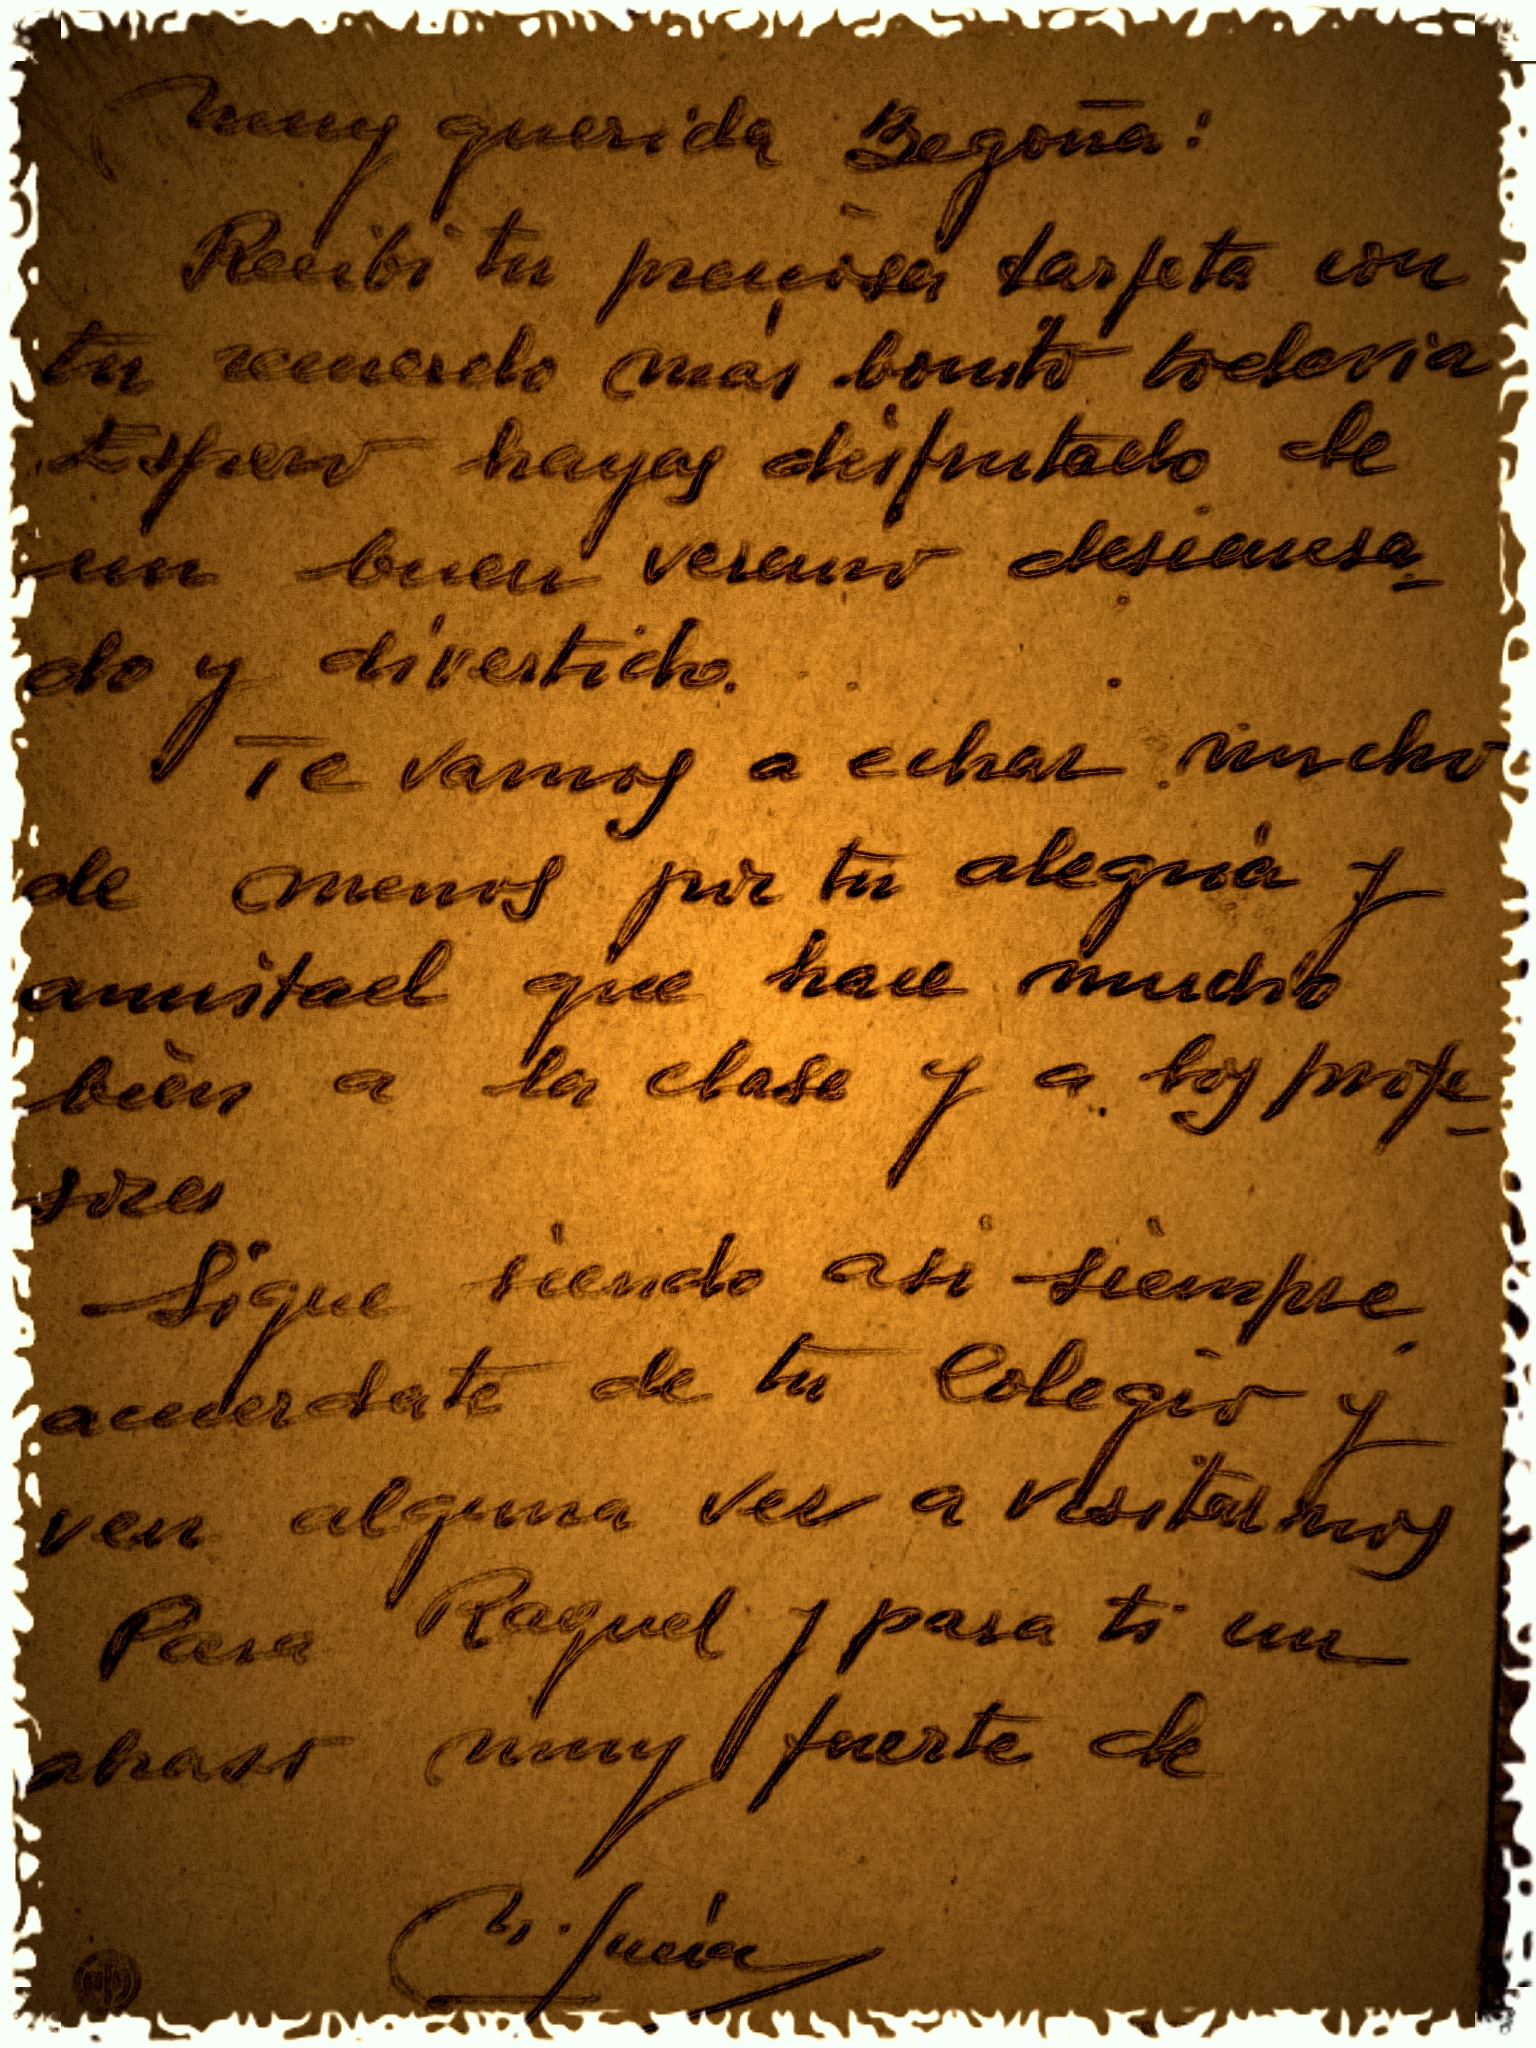 Muy querida Begoña:
Recibí tu preciosa tarjeta con
tu recuerdo más bonito todavía
Espero hayas disfrutado de
un buen verano descansa-
do y divertido.
Te vamos a echar mucho
de menos por tu alegría y
amistad que hace mucho
bien a la clase y a los profe-
sores
Sigue siendo así siempre,
acuérdate de tu Colegio y
ven alguna vez a visitarnos
Para Raquel y para ti un
abrazo muy fuerte de
Lucía